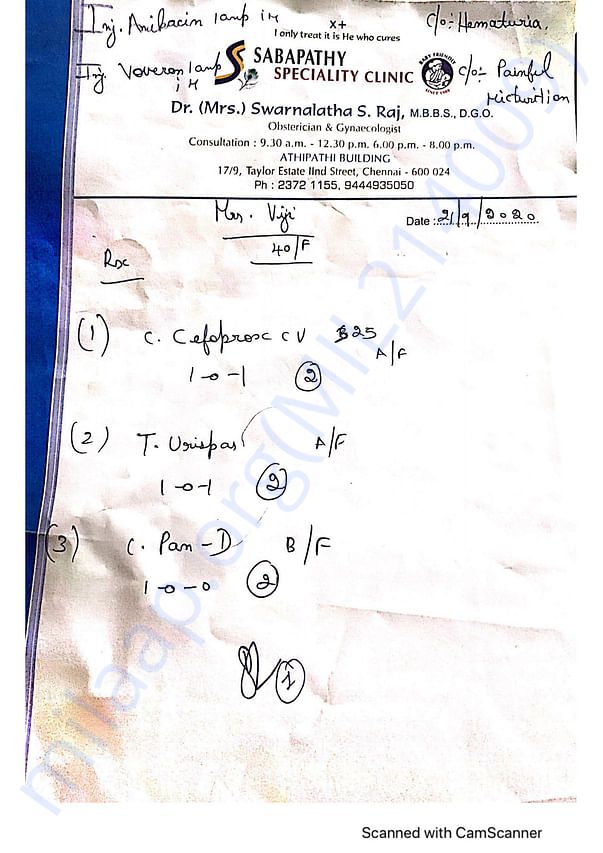 Inj. Amikacin 1amp iM
x+
c/o: Hematuria.
I only treat it is He who cures
Inj. Voveran 1amp
iM
SABAPATHY
SPECIALITY CLINIC
BABY FRIENDLY
SINCE 1998
c/o:- Painful
Micturition
Dr. (Mrs.) Swarnalatha S. Raj, M.B.B.S., D.G.O.
Obsterician & Gynaecologist
Consultation : 9.30 a.m. - 12.30 p.m. 6.00 p.m. - 8.00 p.m.
ATHIPATHI BUILDING
17/9, Taylor Estate IInd Street, Chennai - 600 024
Ph : 2372 1155, 9444935050
Mrs. Viji
Date : 21/9/2020
40/F
(1) C. Cefoprox CV 325
A/F
1-0-1 2
(2) T. Urispas A/F
1-0-1 2
(3) C. Pan-D B/F
1-0-0 2
milaap.org(MIL_214009)
Scanned with CamScanner